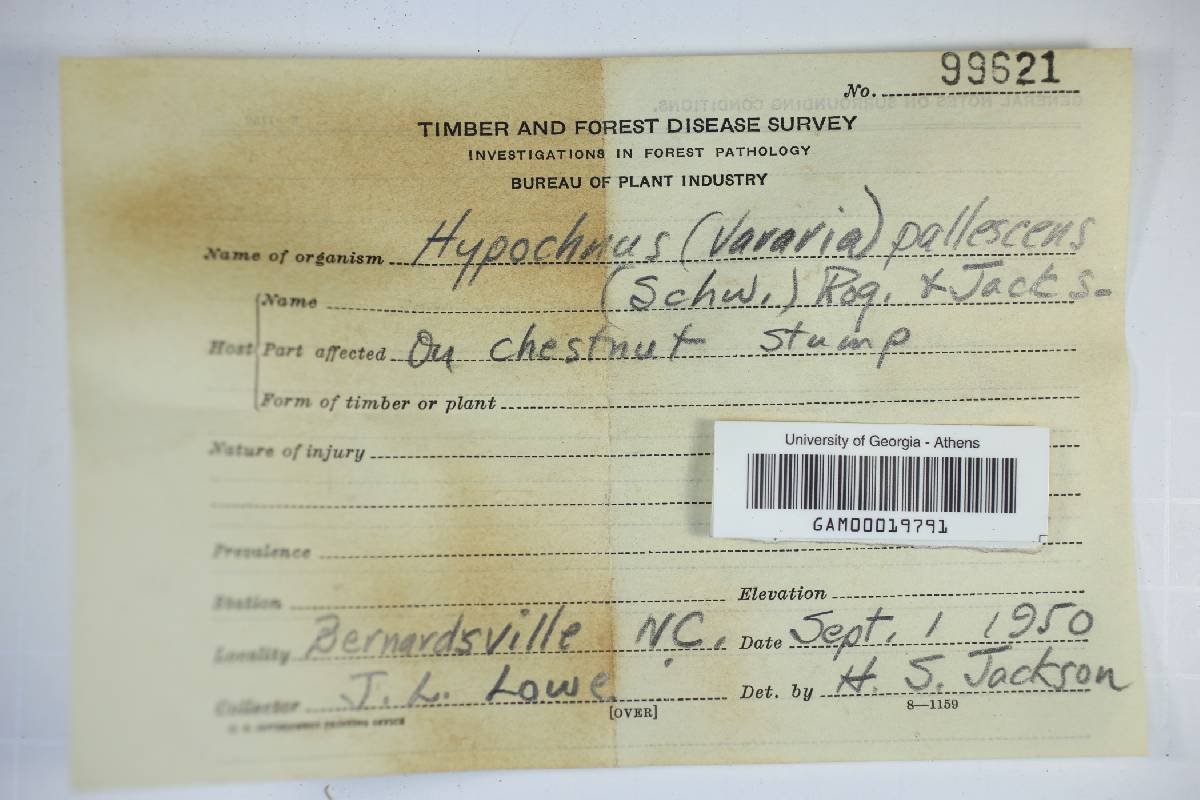 No. 99621
GENERAL NOTES ON SURROUNDING CONDITIONS.
TIMBER AND FOREST DISEASE SURVEY
INVESTIGATIONS IN FOREST PATHOLOGY
BUREAU OF PLANT INDUSTRY
Name of organism Hypochnus (Vararia) pallescens
Name (Schw.) Rog. & Jacks.
Host Part affected On chestnut stump
Form of timber or plant
Nature of injury
University of Georgia - Athens
GAM00019791
Prevalence
Station Elevation
Locality Bernardsville N.C. Date Sept. 1 1950
Collector J. L. Lowe Det. by H. S. Jackson
U. S. GOVERNMENT PRINTING OFFICE [OVER] 8—1159